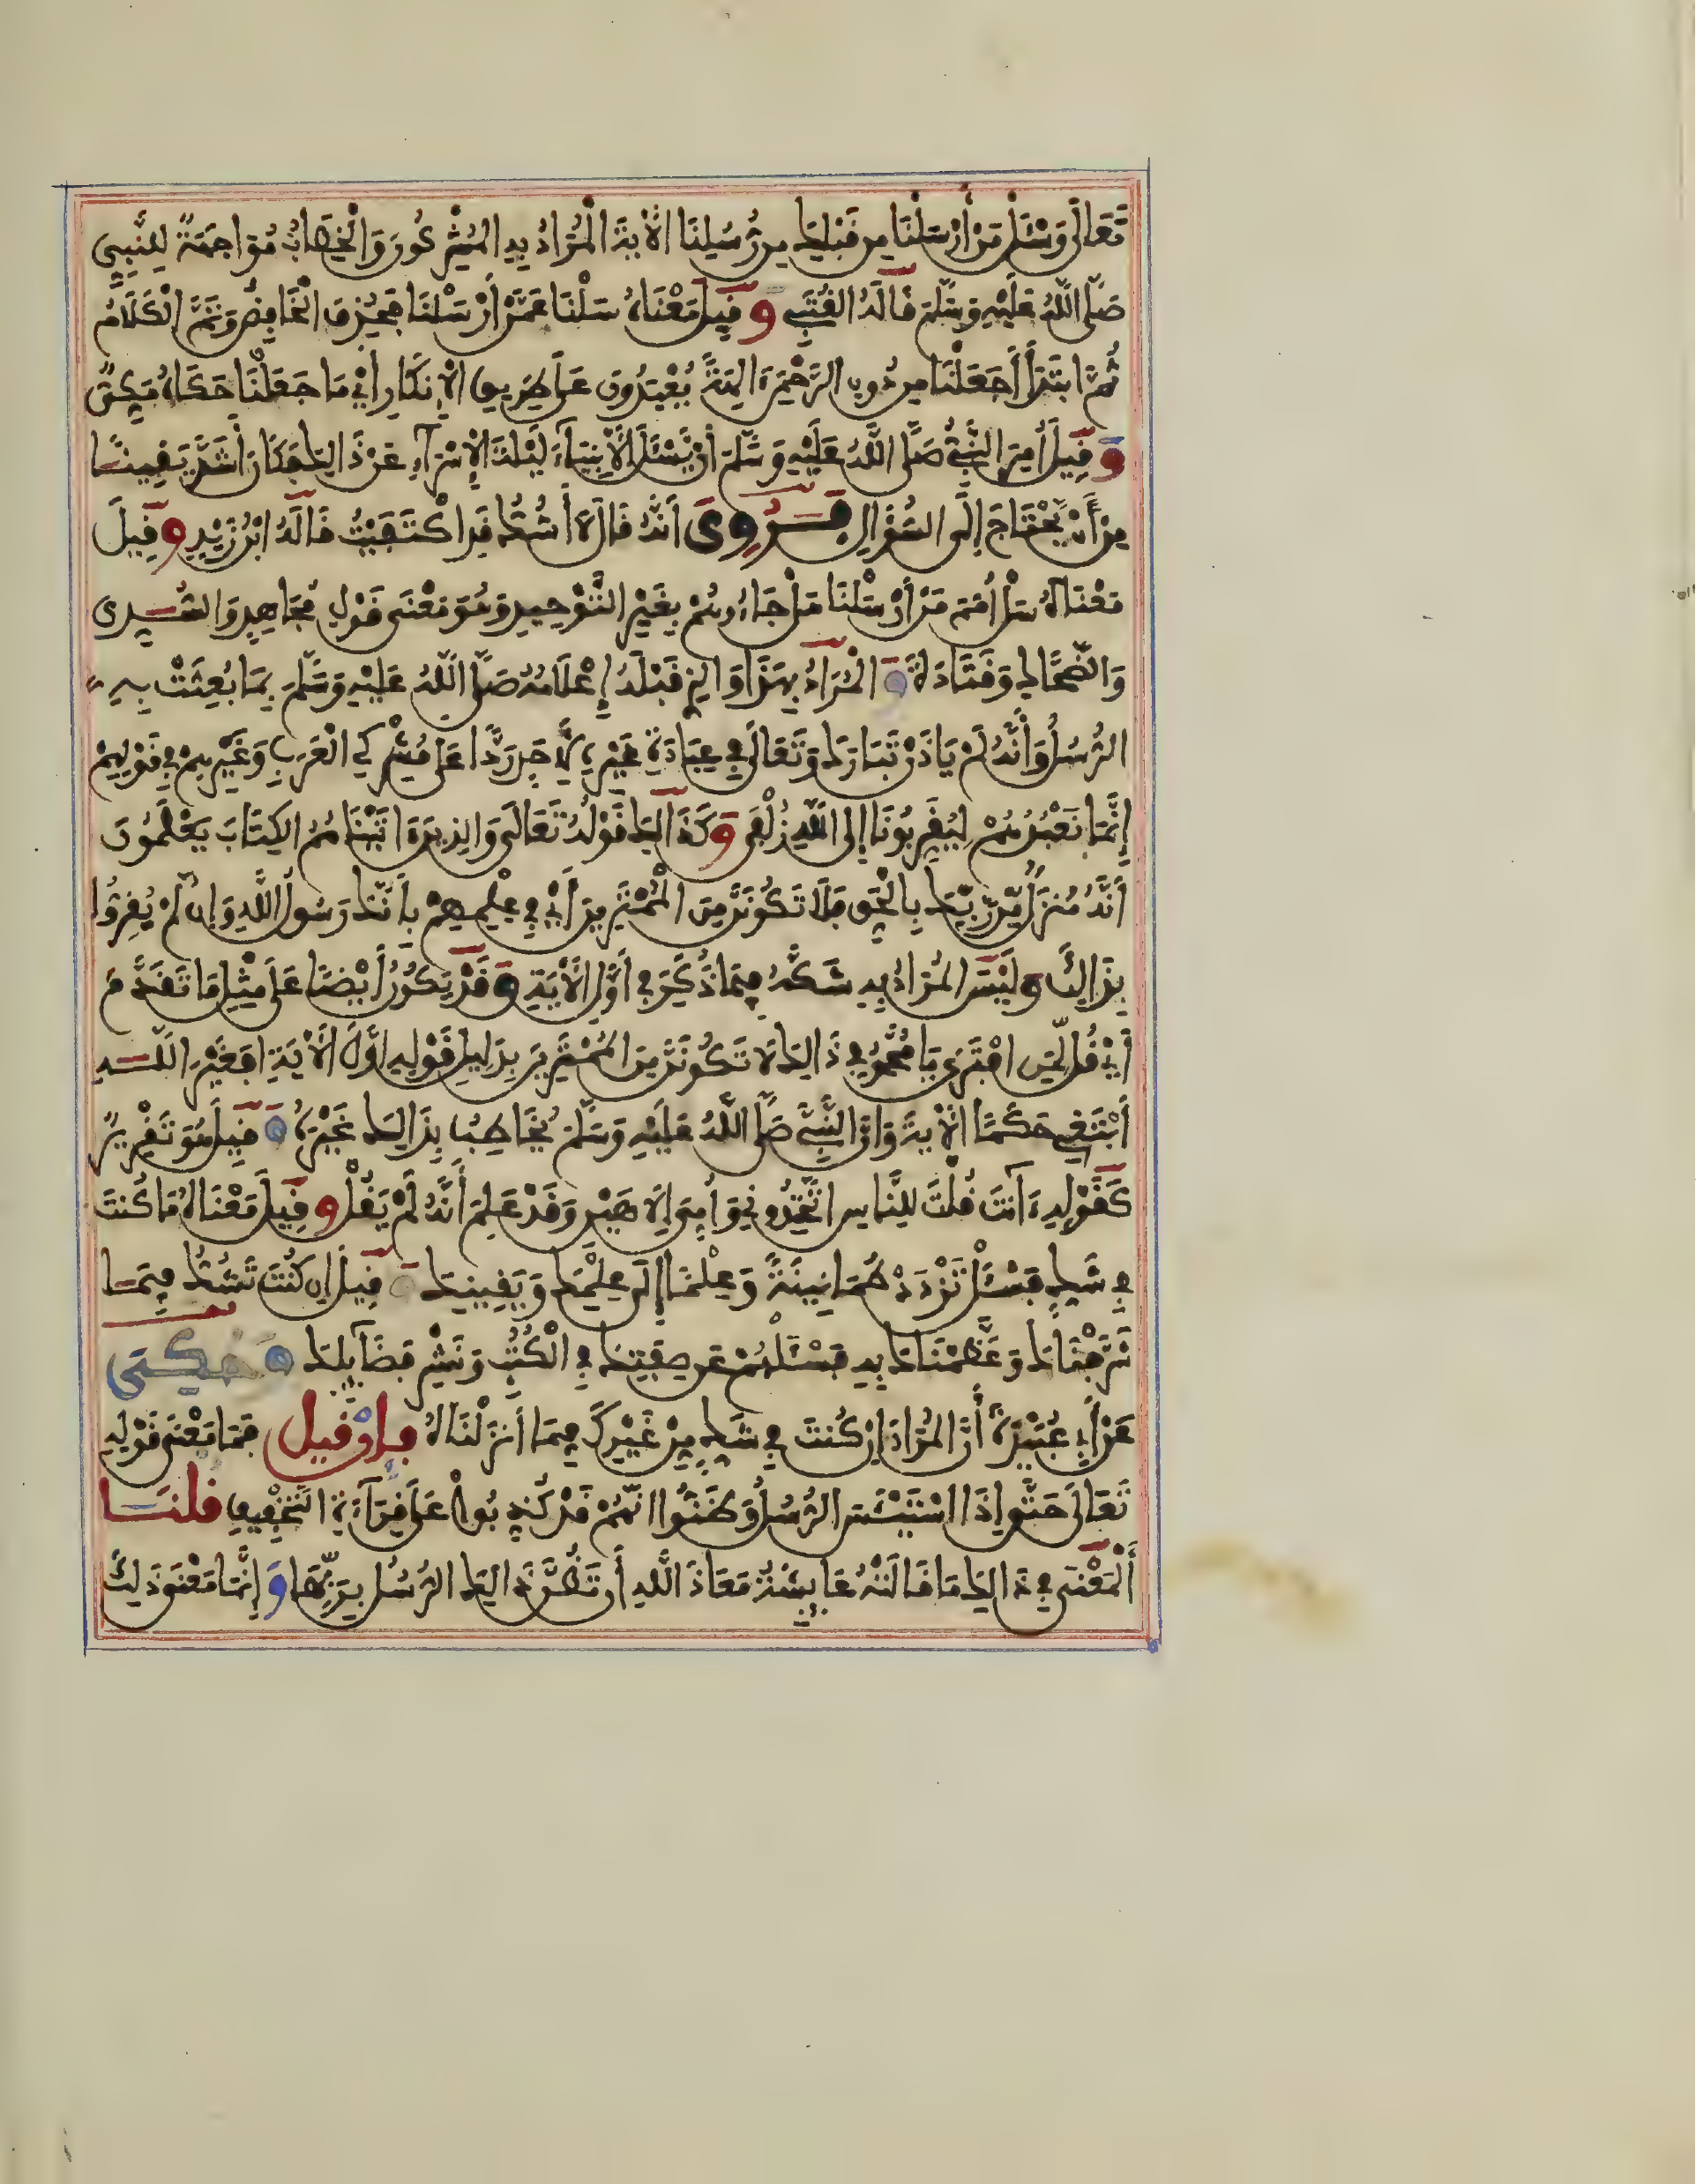 تَعَالَى وَسْئَلْ مَنْ أَرْسَلْنَا مِن قَبْلِكَ مِن رُّسُلِنَا الْأَيَةَ الْمُرَادُ بِهِ الْمُشْرِكُونَ وَالْخِطَابُ مُوَاجَهَةً لِلنَّبِيِّ
صَلَّى اللَّهُ عَلَيْهِ وَسَلَّمَ قَالَهُ الْقُتَبِي وَقِيلَ مَعْنَاهُ سَلْنَا عَمَّنْ أَرْسَلْنَا فَحُذِفَ الْخَافِضُ وَتَمَّ الْكَلَامُ
ثُمَّ ابْتَدَأَ أَجَعَلْنَا مِن دُونِ الرَّحْمَنِ ءَالِهَةً يُعْبَدُونَ عَلَى طَرِيقِ الْإِنْكَارِ أَيْ مَا جَعَلْنَا حَكَاهُ مَكِّيٌّ
وَقِيلَ أُمِرَ النَّبِيُّ صَلَّى اللَّهُ عَلَيْهِ وَسَلَّمَ أَنْ يَّسْئَلَ الْأَنْبِيَاءَ لَيْلَةَ الْإِسْرَاءِ عَنْ ذَالِكَ فَكَانَ أَشَدَّ يَقِينًا
مِنْ أَنْ يَّحْتَاجَ إِلَى السُّؤَالِ فَرُوِيَ أَنَّهُ قَالَ لَا أَشُكُّ قَدِ اكْتَفَيْتُ قَالَهُ ابْنُ زَيْدٍ وَقِيلَ
مَعْنَاهُ سَلْ أُمَمَ مَنْ أَرْسَلْنَا هَلْ جَاءُوهُمْ بِغَيْرِ التَّوْحِيدِ وَهُوَ مَعْنَى قَوْلِ مُجَاهِدٍ وَالسُّدِّي
وَالضَّحَّاكِ وَقَتَادَةَ وَالْمُرَادُ بِهَذَا وَالَّذِي قَبْلَهُ إِعْلَامُهُ صَلَّى اللَّهُ عَلَيْهِ وَسَلَّمَ بِمَا بُعِثَتْ بِهِ
الرُّسُلُ وَأَنَّهُ لَمْ يَاذَنْ تَبَارَكَ وَتَعَالَى فِي عِبَادَةِ غَيْرِهِ لِأَحَدٍ رَدًّا عَلَى مُشْرِكِي الْعَرَبِ وَغَيْرِهِمْ فِي قَوْلِهِمْ
إِنَّمَا نَعْبُدُهُمْ لِيُقَرِّبُونَا إِلَى اللَّهِ زُلْفَى وَكَذَالِكَ قَوْلُهُ تَعَالَى وَالَّذِينَ ءَاتَيْنَاهُمُ الْكِتَابَ يَعْلَمُونَ
أَنَّهُ مُنْزَلٌ مِّن رَّبِّكَ بِالْحَقِّ فَلَا تَكُونَنَّ مِنَ الْمُمْتَرِينَ أَيْ فِي عِلْمِهِمْ بِأَنَّكَ رَسُولُ اللَّهِ وَإِن لَّمْ يُقِرُّوا
بِذَالِكَ وَلَيْسَ الْمُرَادُ بِهِ شَكَّهُ فِيمَا ذُكِرَ فِي أَوَّلِ الْأَيَةِ وَقَدْ يَكُونُ أَيْضًا عَلَى مِثْلِ مَا تَقَدَّمَ
أَيْ قُل لِّمَنِ امْتَرَى يَا مُحَمَّدُ فِي ذَالِكَ لَا تَكُونَنَّ مِنَ الْمُمْتَرِينَ بِدَلِيلِ قَوْلِهِ أَوَّلَ الْأَيَةِ أَفَغَيْرَ اللَّهِ
أَبْتَغِي حَكَمًا الْأَيَةَ وَأَنَّ النَّبِيَّ صَلَّى اللَّهُ عَلَيْهِ وَسَلَّمَ يُخَاطِبُ بِذَالِكَ غَيْرَهُ وَقِيلَ هُوَ تَقْرِيرٌ
كَقَوْلِهِ ءَآنتَ قُلْتَ لِلنَّاسِ اتَّخِذُونِي وَأُمِّيَ إِلَاهَيْنِ وَقَدْ عَلِمَ أَنَّهُ لَمْ يَقُلْ وَقِيلَ مَعْنَاهُ مَا كُنتَ
فِي شَكٍّ فَسْئَلْ تَزْدَدْ طُمَانِينَةً وَعِلْمًا إِلَى عِلْمِكَ وَيَقِينِكَ وَقِيلَ إِن كُنتَ تَشُكُّ فِيمَا
شَرَّفْنَاكَ وَعَظَّمْنَاكَ بِهِ فَسْئَلْهُمْ عَن صِفَتِكَ فِي الْكُتُبِ وَنَشْرِ فَضَائِلِكَ وَحُكِيَ
عَنْ أَبِي عُبَيْدَةَ أَنَّ الْمُرَادَ إِن كُنتَ فِي شَكٍّ مِنْ غَيْرِكَ فِيمَا أَنْزَلْنَاهُ فَإِنْ قِيلَ فَمَا مَعْنَى قَوْلِهِ
تَعَالَى حَتَّى إِذَا اسْتَيْئَسَ الرُّسُلُ وَظَنُّوا أَنَّهُمْ قَدْ كُذِبُوا عَلَى قِرَاءَةِ التَّخْفِيفِ قُلْنَا
الْمَعْنَى فِي ذَالِكَ مَا قَالَتْهُ عَائِشَةُ مَعَاذَ اللَّهِ أَن تَظُنَّ ذَالِكَ الرُّسُلُ بِرَبِّهَا وَإِنَّمَا مَعْنَى ذَلِكَ